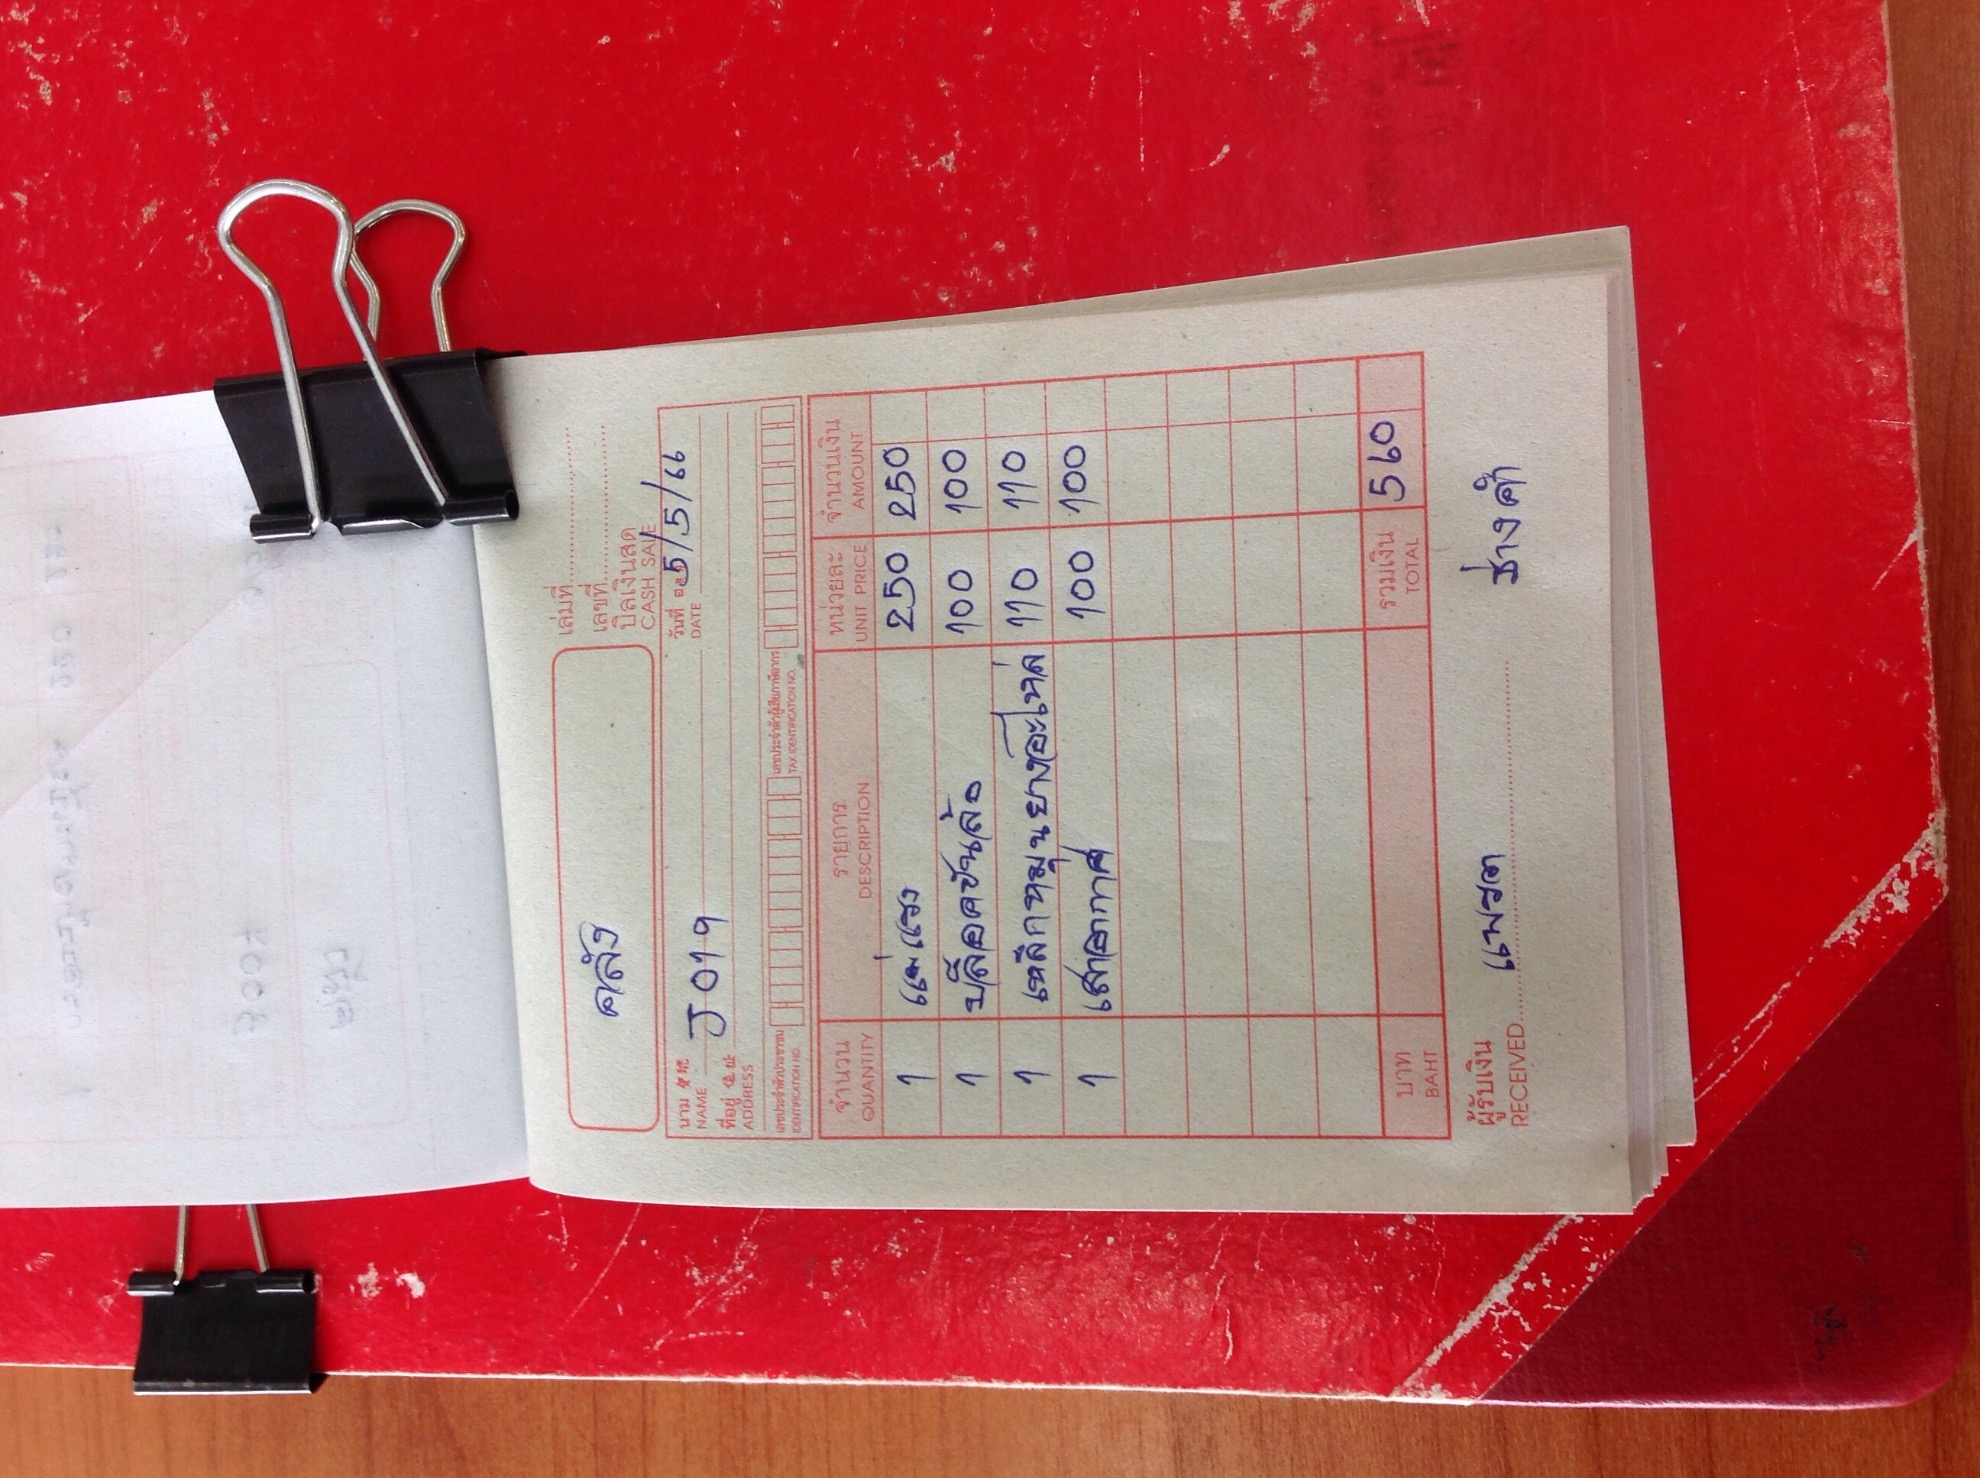 เล่มที่
เลขที่
คลัง
บิลเงินสด
CASH SALE
นาม
NAME
J019
วันที่ 5/5/66
DATE
ที่อยู่
ADDRESS
เลขประจำตัวประชาชน
IDENTIFICATION NO.
เลขประจำตัวผู้เสียภาษีอากร
TAX IDENTIFICATION NO.
จำนวน รายการ หน่วยละ จำนวนเงิน
QUANTITY DESCRIPTION UNIT PRICE AMOUNT
1 แม่แรง 250 250
1 บล็อคขันล้อ 100 100
1 เหล็กหมุนยางอะไหล่ 110 110
1 เสาอากาศ 100 100
บาท รวมเงิน 560
BAHT TOTAL
ผู้รับเงิน
RECEIVED
ช่างคำ